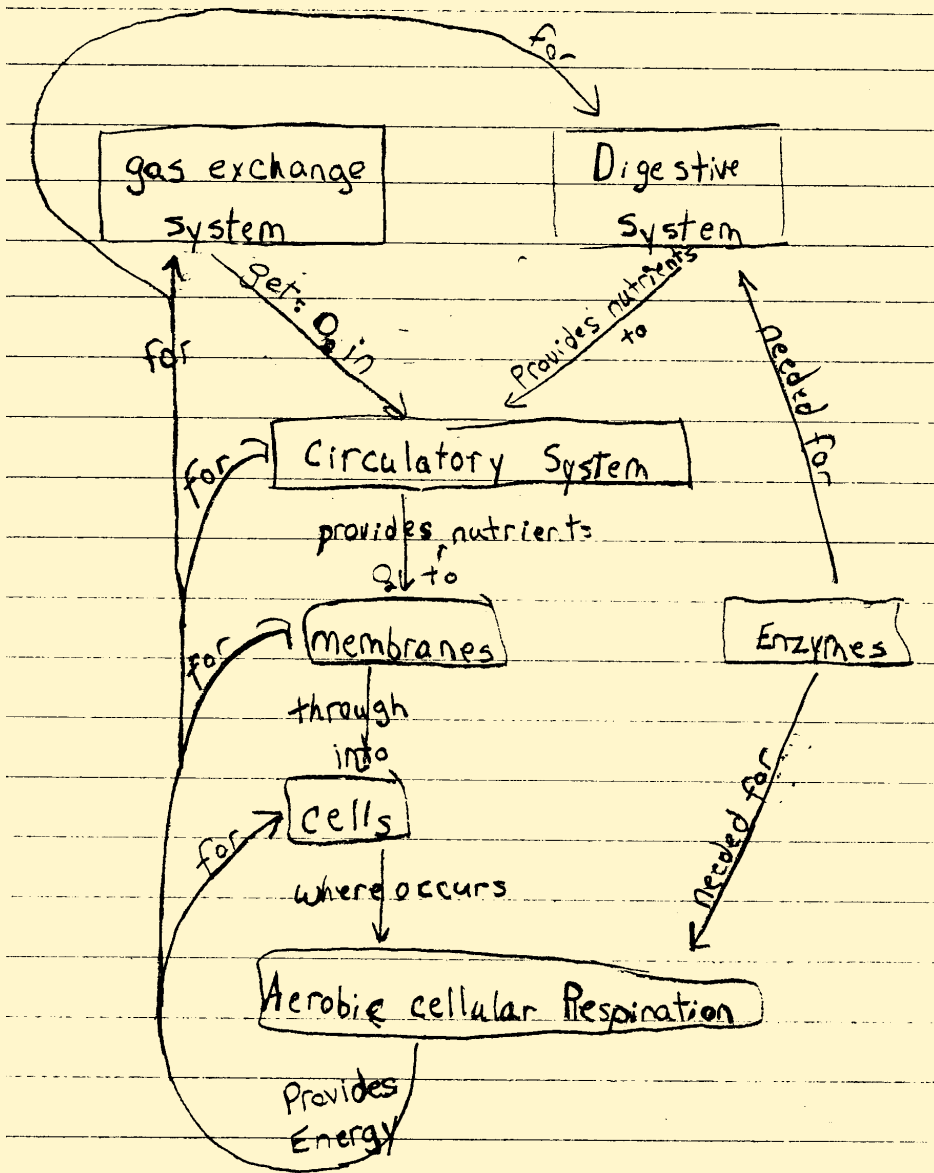 for
gas exchange
system
Digestive
System
gets O₂ in
Provides nutrients
to
needed for
for
for
Circulatory System
provides nutrients
O₂ to
for
membranes
Enzymes
through
into
for
cells
needed for
where occurs
Aerobic cellular Respiration
Provides
Energy